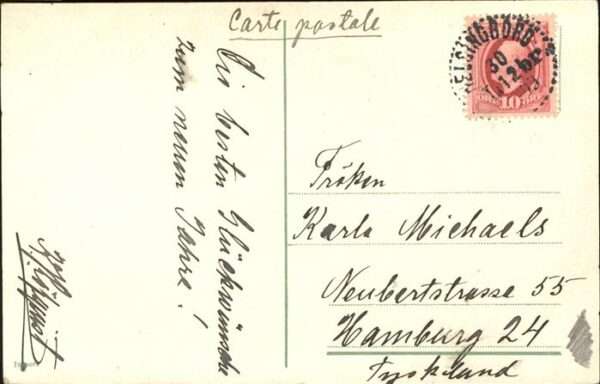 Carte postale
Die besten Glückwünsche
zum neuen Jahre!
HELSINGBORG
30
12
10
Fröken
Karla Michaels
Neubertstrasse 55
Hamburg 24
Tyskland